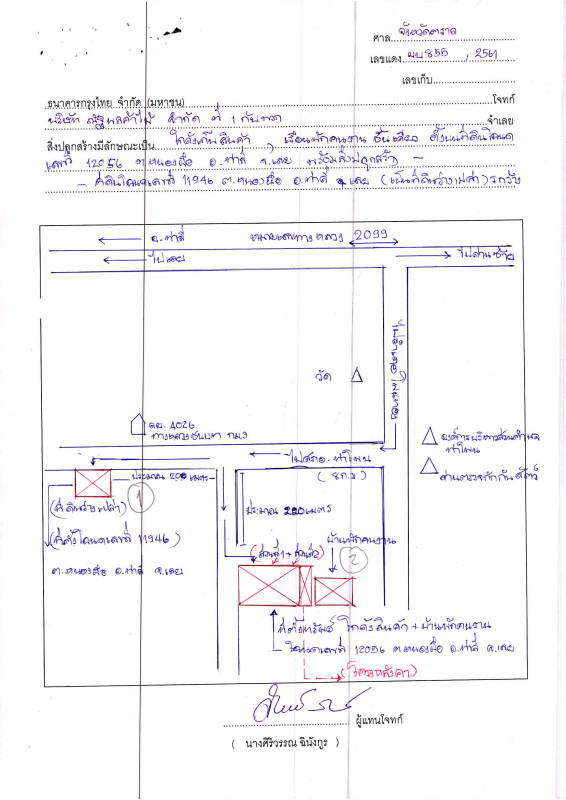 ศาล จังหวัดตราด
เลขแดง ผบ855 / 2561
เลขเก็บ
ธนาคารกรุงไทย จำกัด (มหาชน) โจทก์
บริษัท ณัฐผลค้าไม้ จำกัด ที่ 1 กับพวก จำเลย
สิ่งปลูกสร้างมีลักษณะเป็น โกดังเก็บสินค้า , เรือนพักคนงาน ชั้นเดียว ตั้งบนที่ดินโฉนด
เลขที่ 12056 ต.หนองผือ อ.ท่าลี่ จ.เลย พร้อมสิ่งปลูกสร้าง -
- ที่ดินโฉนดเลขที่ 11946 ต.หนองผือ อ.ท่าลี่ จ.เลย (เป็นที่ดินว่างเปล่า)
อ.ท่าลี่
หมายเลขทางหลวง 2099
ไปเลย
ไปด่านซ้าย
วัด
ลย. 4026
ทางหลวงชนบท กม.3
องค์การบริหารส่วนตำบล
ด่านตรวจกักกันสัตว์
ประมาณ 200 เมตร
1
(ที่ดินว่างเปล่า)
(ที่ตั้งโฉนดเลขที่ 11946)
ต.หนองผือ อ.ท่าลี่ จ.เลย
ประมาณ 200 เมตร
บ้านพักคนงาน
(ส่วนที่1 + ส่วนที่2)
2
ที่ตั้งทรัพย์ โกดังสินค้า + บ้านพักคนงาน
โฉนดเลขที่ 12056 ต.หนองผือ อ.ท่าลี่ จ.เลย
(โครงหลังคา)
ผู้แทนโจทก์
( นางศิริวรรณ ฉินังกูร )